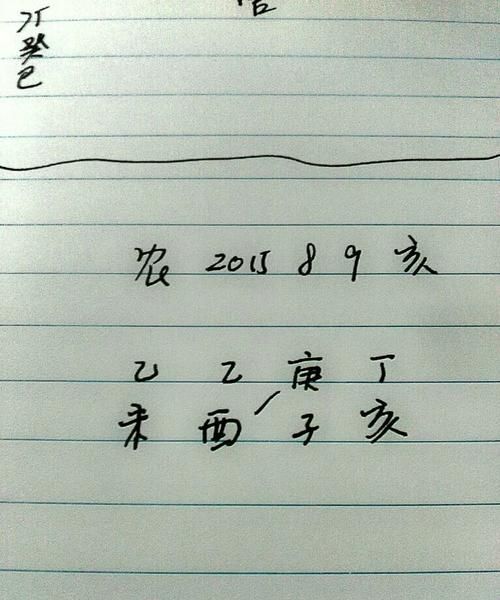 癸
巳
农 2015 8 9 亥
乙 乙 庚 丁
未 酉 子 亥